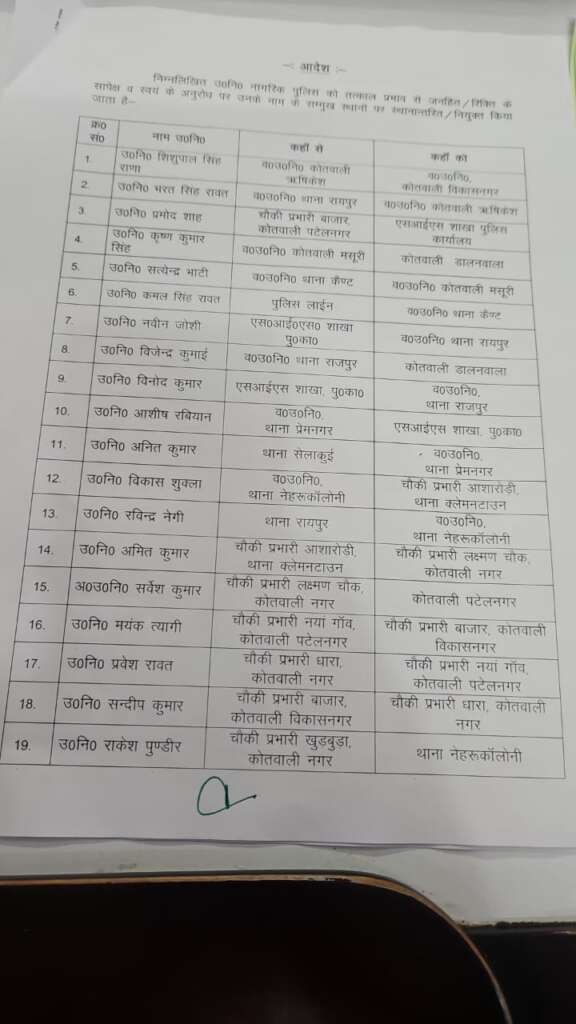 -: आदेश :-
निम्नलिखित उ0नि0 नागरिक पुलिस को तत्काल प्रभाव से जनहित/रिक्ति के
सापेक्ष व स्वयं के अनुरोध पर उनके नाम के सम्मुख स्थानों पर स्थानान्तरित/नियुक्त किया
जाता है-
क्र0 सं0 नाम उ0नि0 कहाँ से कहाँ को
1. उ0नि0 शिशुपाल सिंह राणा व0उ0नि0 कोतवाली ऋषिकेश व0उ0नि0, कोतवाली विकासनगर
2. उ0नि0 भरत सिंह रावत व0उ0नि0 थाना रायपुर व0उ0नि0 कोतवाली ऋषिकेश
3. उ0नि0 प्रमोद शाह चौकी प्रभारी बाजार, कोतवाली पटेलनगर एसआईएस शाखा पुलिस कार्यालय
4. उ0नि0 कृष्ण कुमार सिंह व0उ0नि0 कोतवाली मसूरी कोतवाली डालनवाला
5. उ0नि0 सत्येन्द्र भाटी व0उ0नि0 थाना कैण्ट व0उ0नि0 कोतवाली मसूरी
6. उ0नि0 कमल सिंह रावत पुलिस लाईन व0उ0नि0 थाना कैण्ट
7. उ0नि0 नवीन जोशी एस0आई0एस0 शाखा पु0का0 व0उ0नि0 थाना रायपुर
8. उ0नि0 विजेन्द्र कुमाई व0उ0नि0 थाना राजपुर कोतवाली डालनवाला
9. उ0नि0 विनोद कुमार एसआईएस शाखा, पु0का0 व0उ0नि0, थाना राजपुर
10. उ0नि0 आशीष रबियान व0उ0नि0, थाना प्रेमनगर एसआईएस शाखा, पु0का0
11. उ0नि0 अनित कुमार थाना सेलाकुई व0उ0नि0, थाना प्रेमनगर
12. उ0नि0 विकास शुक्ला व0उ0नि0, थाना नेहरूकॉलोनी चौकी प्रभारी आशारोड़ी, थाना क्लेमनटाउन
13. उ0नि0 रविन्द्र नेगी थाना रायपुर व0उ0नि0, थाना नेहरूकॉलोनी
14. उ0नि0 अमित कुमार चौकी प्रभारी आशारोडी, थाना क्लेमनटाउन चौकी प्रभारी लक्ष्मण चौक, कोतवाली नगर
15. अ0उ0नि0 सर्वेश कुमार चौकी प्रभारी लक्ष्मण चौक, कोतवाली नगर कोतवाली पटेलनगर
16. उ0नि0 मयंक त्यागी चौकी प्रभारी नयां गॉव, कोतवाली पटेलनगर चौकी प्रभारी बाजार, कोतवाली विकासनगर
17. उ0नि0 प्रवेश रावत चौकी प्रभारी धारा, कोतवाली नगर चौकी प्रभारी नयां गॉव, कोतवाली पटेलनगर
18. उ0नि0 सन्दीप कुमार चौकी प्रभारी बाजार, कोतवाली विकासनगर चौकी प्रभारी धारा, कोतवाली नगर
19. उ0नि0 राकेश पुण्डीर चौकी प्रभारी खुड़बुड़ा, कोतवाली नगर थाना नेहरूकॉलोनी